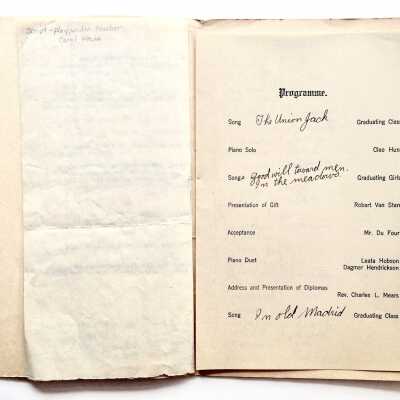 Programme.
Song The Union Jack Graduating Clas
Piano Solo Cleo Hun
Songs good will toward men. Graduating Girls
In the meadows.
Presentation of Gift Robert Van Sten
Acceptance Mr. Du Four
Piano Duet Leata Hobson
Dagmar Hendrickson
Address and Presentation of Diplomas
Rev. Charles L. Mears
Song In old Madrid Graduating Class